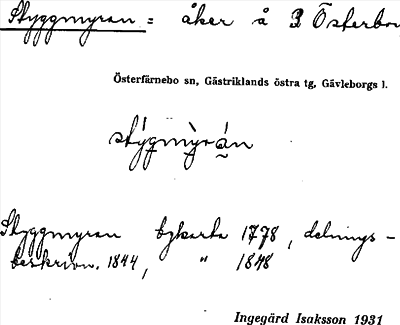 Styggmyran = åker å 3 Österbo
Österfärnebo sn, Gästriklands östra tg, Gävleborgs l.
stýgmỳrán
Styggmyran bykarta 1778, delnings-
beskrivn. 1844, " 1848
Ingegärd Isaksson 1931